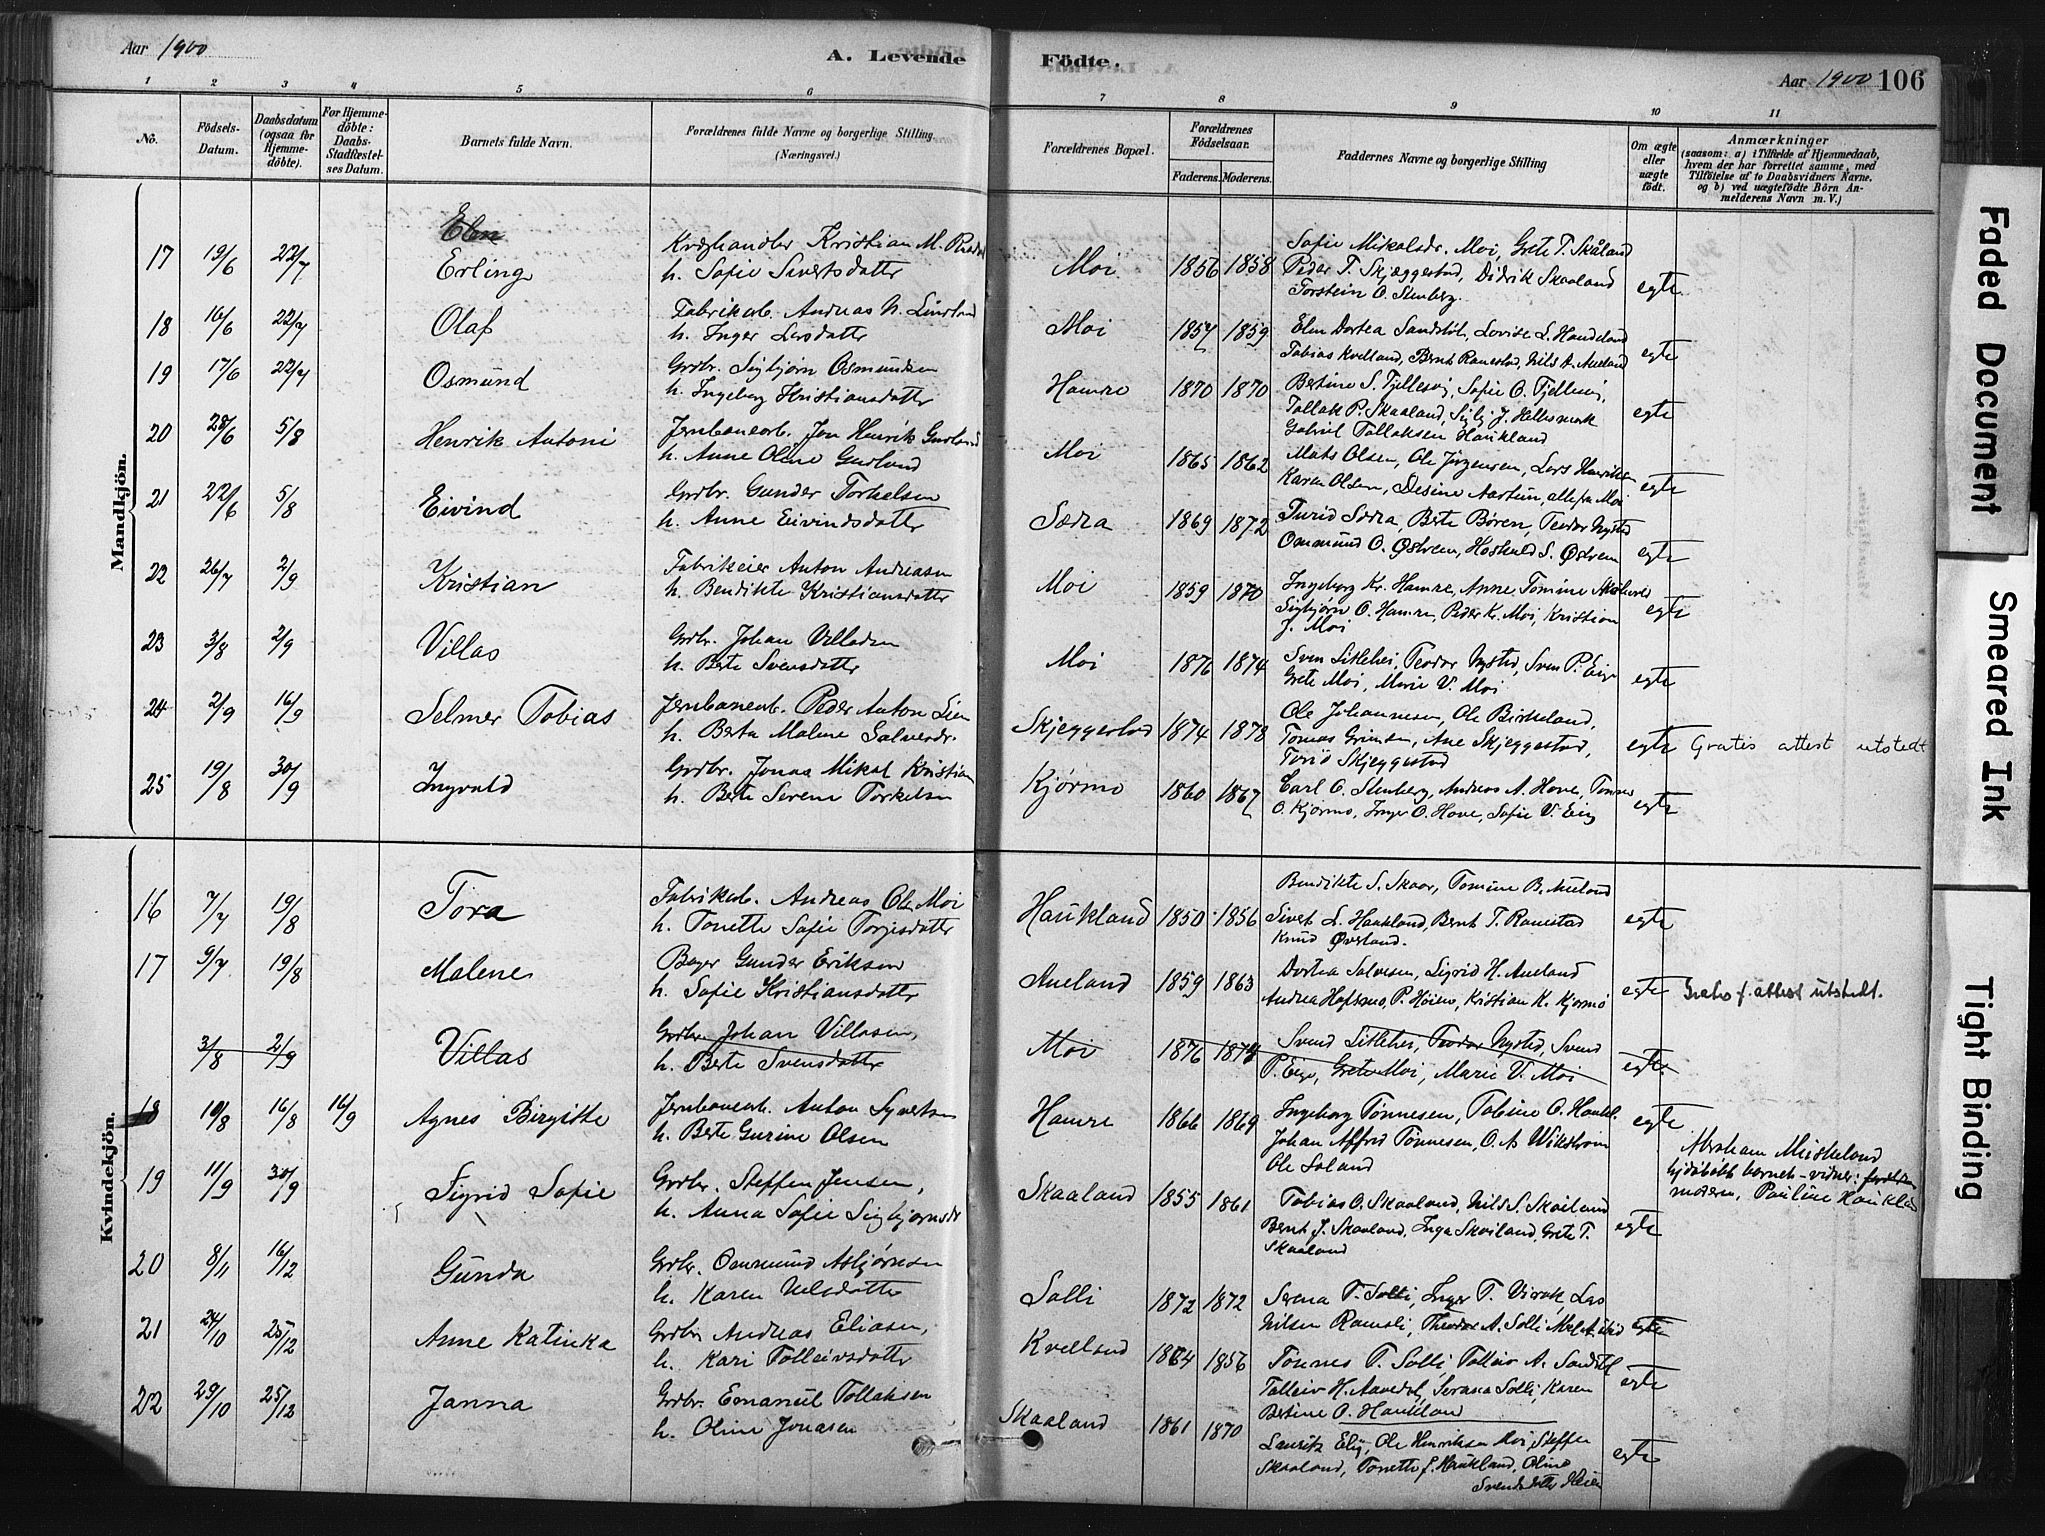 Aar 1900
A. Levende
Födte.
Aar 1900 106
1 2 3 4 5 6 7 8 9 10 11
No.
Födsels-Datum.
Daabsdatum (ogsaa for Hjemme-döbte).
For Hjemme-döbte: Daabs-Stadfæstel-ses Datum.
Barnets fulde Navn.
Forældrenes fulde Navne og borgerlige Stilling. (Næringsvei.)
Forældrenes Bopæl.
Forældrenes Födselsaar.
Faderens. Moderens.
Faddernes Navne og borgerlige Stilling
Om ægte eller uægte födt.
Anmærkninger
(saasom: a) i Tilfælde af Hjemmedaab, hvem der har forrettet samme, med Tilföielse af to Daabsvidners Navne. og b) ved uægtefödte Börn An-melderens Navn m. V.)
Mandkjön.
17 19/6 22/7 Erling
Kristian M.
h. Sofie Sivertsdatter
Moi 1856 1858
Sofie Mikalsdr. Moi, Grete T. Skåland
Peder T. Skjæggestad, Didrik Skaaland
Torstein O. Stenberg.
egte
18 16/6 22/7 Olaf
Fabrikarb. Andreas N.
h. Inger Larsdatter
Moi 1857 1859
Elen Dortea Sandstöl, Lovise L. Haukland
Tobias Kvelland, Bernt Ramestad, Nils A. Aueland
egte
19 17/6 22/7 Osmund
Grdbr. Sigbjørn Osmundsen
h. Ingeborg Kristiansdatter
Hamre 1870 1870
Bertine S. Sofie O.
Tollak P. Skaaland,
Gabriel Tollaksen Haukland
egte
20 28/6 5/8 Henrik Antoni
Jernbanearb. Jon Henrik
h. Anne Oline
Moi 1865 1862
Mats Olsen, Ole Jörgensen, Lars Henriksen
Karen Olsen, Desine Aarstun, alle fra Moi
egte
21 22/6 5/8 Eivind
Grdbr. Gunder Torkelsen
h. Anne Eivindsdatter
Sædra 1869 1872
Turid Sædra, Berte Bören, Teodor Nysted
Ommund O. Østrem, Hoskuld S. Østrem
egte
22 26/7 2/9 Kristian
Fabrikeier Anton Andreasen
h. Bendikte Kristiansdatter
Moi 1859 1870
Ingeborg Kr. Hamre, Anne Tomine
Sigbjørn O. Hamre, Peder Kr. Moi, Kristian
J. Moi
egte
23 3/8 2/9 Villas
Grdbr. Johan Villadsen
h. Berte Svensdatter
Moi 1876 1874
Sven Litlehei, Teodor Nysted, Sven P. Eige
Grete Moi, Marie V. Moi
egte
24 2/9 16/9 Selmer Tobias
Jernbanearb. Peder Anton Lien
h. Berta Malene Salvesdr.
Skjeggestad 1874 1878
Ole Johannesen, Ole Birkeland,
Tomas Grimsen, Ane Skjeggestad,
Turid Skjeggestad
egte Gratis attest utstedt
25 19/8 30/9 Ingvald
Grdbr. Jonas Mikal Kristian
h. Berte Serene Torkelsen
Kjørmo 1860 1867
Carl O. Stenberg, Andreas A. Hove, Tønnes
O. Kjørmo, Inger O. Hove, Sofie V. Eig
egte
Kvindekjön.
16 7/7 19/8 Tora
Fabrikarb. Andreas Ols. Moi
h. Tonette Sofie Torgisdatter
Haukland 1850 1856
Bendikte S. Skaar, Tomine B. Aueland
Sivert L. Haukland, Bernt T. Ramestad
Knud Øverland.
egte
17 9/7 19/8 Malene
Gunder Eriksen
h. Sofie Kristiansdatter
Aueland 1859 1863
Dortea Salvesen, Sigrid H. Aueland
Andrea Hofsmo, P. Høien, Kristian K. Kjørmo
egte Gratis f. attest utstedt.
3/8 2/9 Villas
Grdbr. Johan Villasen,
h. Berte Svensdatter
Moi 1876 1874
Svend Litlehei, Teodor Nysted, Svend
P. Eige, Grete Moi, Marie V. Moi
egte.
18 10/8 16/8 16/9 Agnes Birgitte
Jernbanearb. Anton Syvertsen
h. Berte Gurine Olsen
Hamre 1866 1869
Ingeborg Tönnesen, Tobine O. Haukl.
Johan Alfred Tönnesen, O. A. Wikström
Ole Loland
egte
Abraham Miskeland
hjdöbt barnet - vidner:
moderen, Pauline Haukland
19 11/9 30/9 Sigrid Sofie
Grdbr. Steffen Jensen,
h. Anna Sofie Sigbjørnsdr
Skaaland 1855 1861
Tobias O. Skaaland, Nils S. Skailand
Bernt J. Skaaland, Inga Skailand, Grete T.
Skaaland
egte
20 8/11 16/12 Gunda
Grdbr. Ommund Asbjørnsen
h. Karen Nilsdatter
Solli 1872 1872
Serena T. Solli, Inger T. Virak, Lars
Nilsen Ramsli, Theodor A. Solli
egte
21 24/10 25/12 Anne Katinka
Grdbr Andreas Eliasen,
h. Kari Tolleivsdatter
Kvelland 1864 1856
Tonnes T. Solli, Tolleiv A. Sandstöl
Tolleiv H. Aavedal, Serana Solli, Karen
Bertine O. Haukland
egte
22 29/10 25/12 Janna
Grdbr. Emanuel Tollaksen
h. Oline Jonasen
Skaaland 1861 1870
Lauritz Elig, Ole Henriksen Moi, Steffen
Skaaland, Tonette J. Haukland, Oline
Svendsdatter Heien
egte
Faded Document
Smeared Ink
Tight Binding